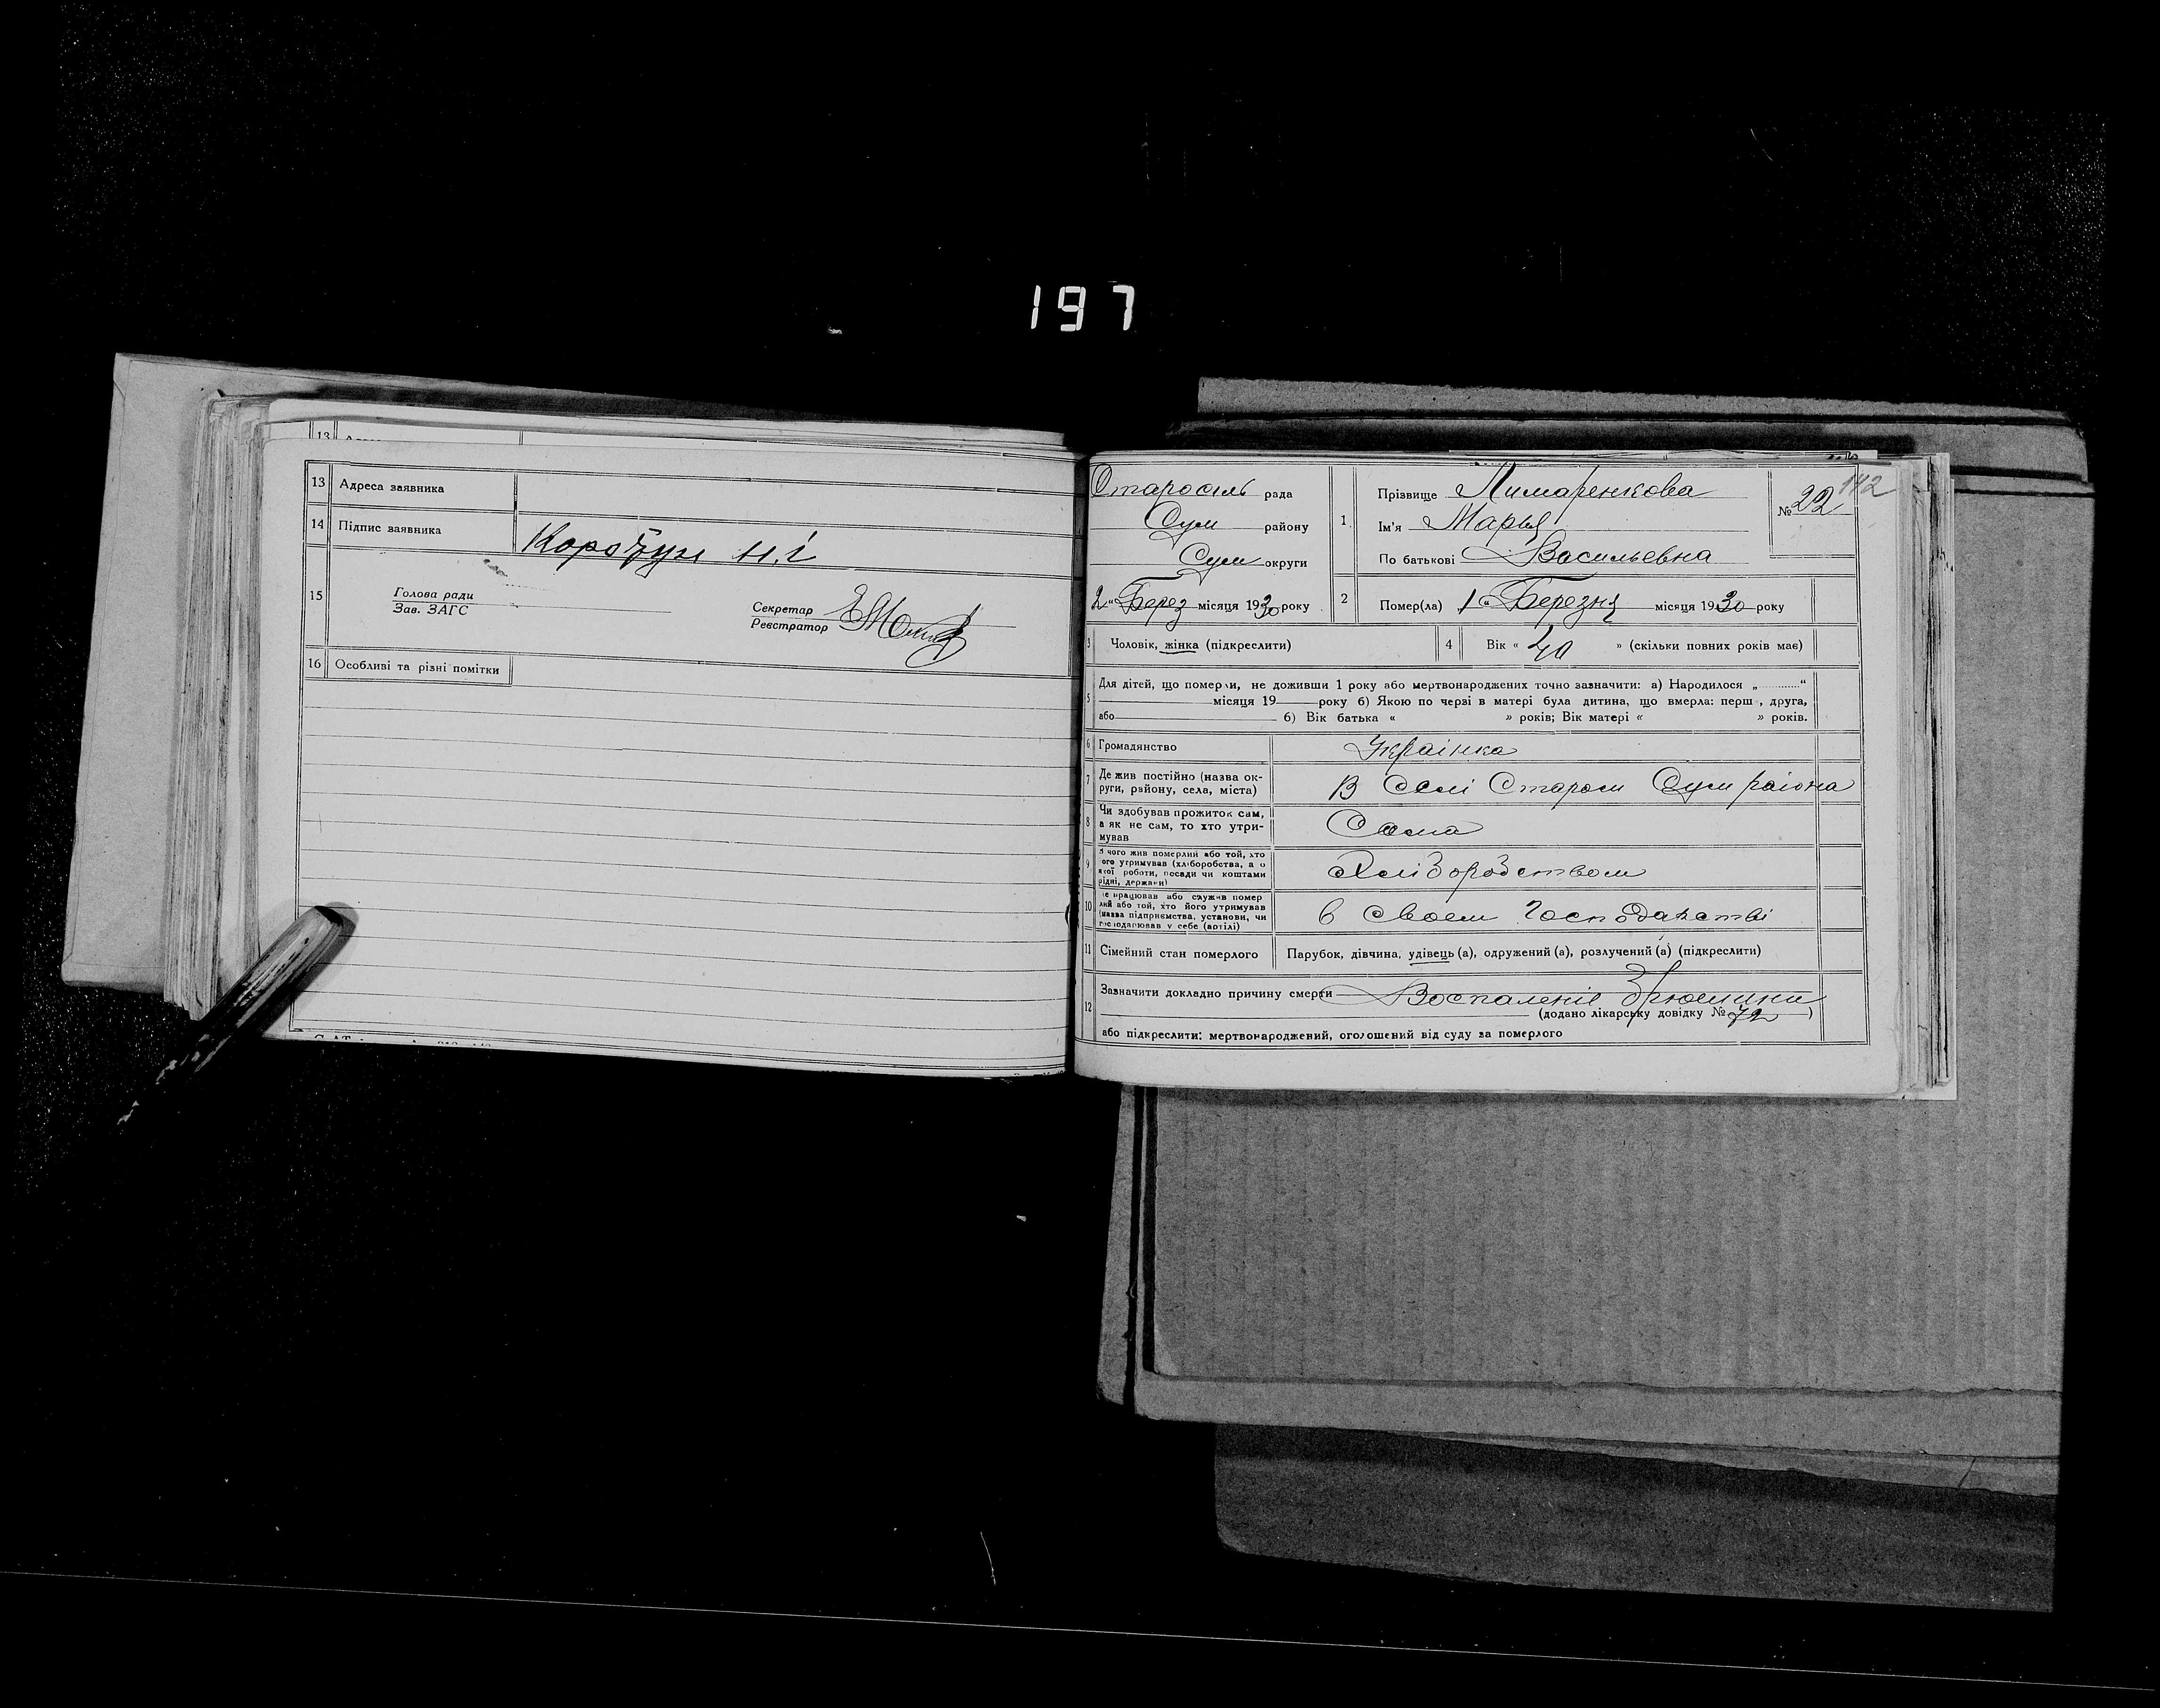 197
13 Адреса заявника
14 Підпис заявника Коробун Н.і
15 Голова ради
Зав. ЗАГС
Секретар
Реєстратор
16 Особливі та різні помітки
Старосіль рада
Сум району
Сум округи
2 „ Берез місяця 1930 року
1 Прізвище Лимаренкова
Ім'я Марья
По батькові Васильевна
№ 22
142
2 Помер(ла) 1 „ Березня місяця 1930 року
3 Чоловік, жінка (підкреслити)
4 Вік « 40 » (скільки повних років має)
5 Для дітей, що померли, не доживши 1 року або мертвонароджених точно зазначити: а) Народилося „ “
місяця 19 року б) Якою по черзі в матері була дитина, що вмерла: перш , друга,
або б) Вік батька « » років; Вік матері « » років.
6 Громадянство Украінка
7 Де жив постійно (назва ок-
руги, району, села, міста) В селі Старом Сум раіона
8 Чи здобував прожиток сам,
а як не сам, то хто утри-
мував Сама
9 З чого жив померлий або той, хто
його утримував (хліборобства, а о
якої роботи, посади чи коштами
рідні, держави) Хліборобством
10 Де працював або служив помер
лий або той, хто його утримував
(назва підприємства, установи, чи
господарював у себе (артілі) в своем господарстві
11 Сімейний стан померлого Парубок, дівчина, удівець (а), одружений (а), розлучений (а) (підкреслити)
12 Зазначити докладно причину смерти Воспаленіе брюшини
(додано лікарську довідку № 72 )
або підкреслити: мертвонароджений, оголошений від суду за померлого